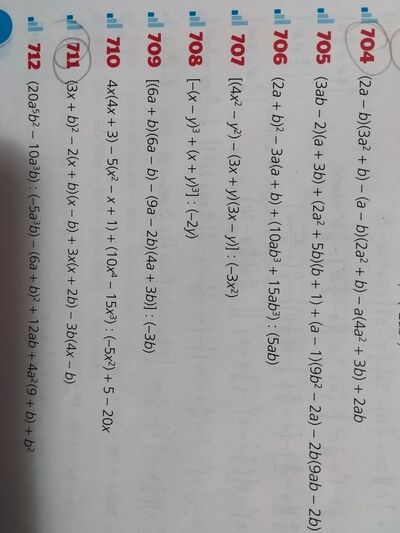 704 (2a – b)(3a² + b) – (a – b)(2a² + b) – a(4a² + 3b) + 2ab
705 (3ab – 2)(a + 3b) + (2a² + 5b)(b + 1) + (a – 1)(9b² – 2a) – 2b(9ab – 2b)
706 (2a + b)² – 3a(a + b) + (10ab³ + 15ab³) : (5ab)
707 [(4x² – y²) – (3x + y)(3x – y)] : (–3x²)
708 [–(x – y)³ + (x + y)³] : (–2y)
709 [(6a + b)(6a – b) – (9a – 2b)(4a + 3b)] : (–3b)
710 4x(4x + 3) – 5(x² – x + 1) + (10x⁴ – 15x³) : (–5x²) + 5 – 20x
711 (3x + b)² – 2(x + b)(x – b) + 3x(x + 2b) – 3b(4x – b)
712 (20a⁵b² – 10a³b) : (–5a³b) – (6a + b)² + 12ab + 4a²(9 + b) + b²